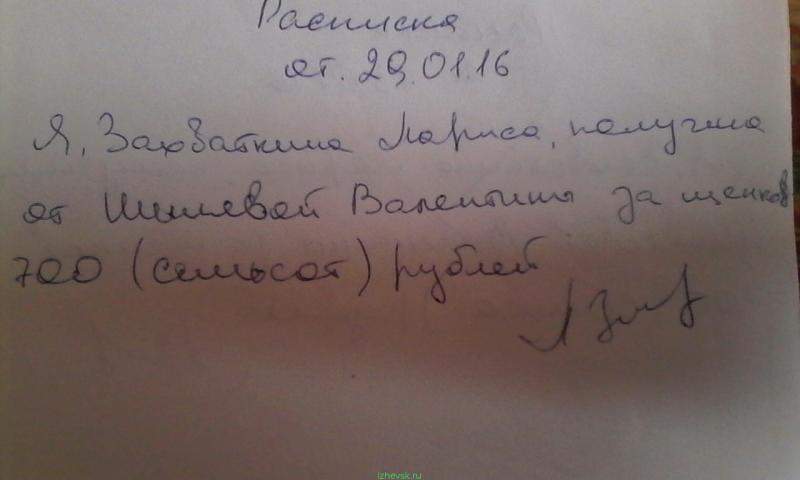 Расписка
от. 29.01.16
Я, Захваткина Лариса, получила
от Валентины за щенков
700 (семьсот) рублей
izhevsk.ru